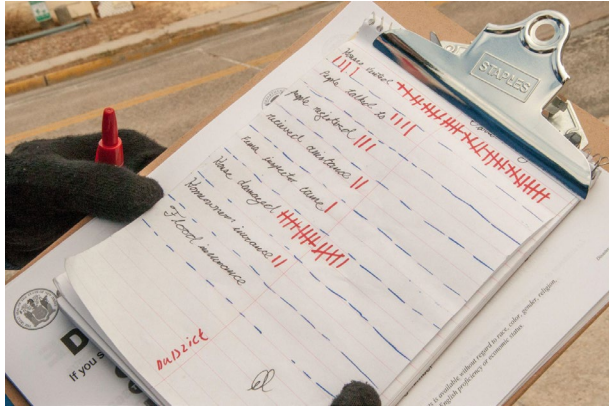 STAPLES
House visited
People talked to
people registered
received assistance
Fema inspector came
House damaged
Homeowners insurance
Flood insurance
DuBzict
D
if you s
is available without regard to race, color, gender, religion,
English proficiency or economic status